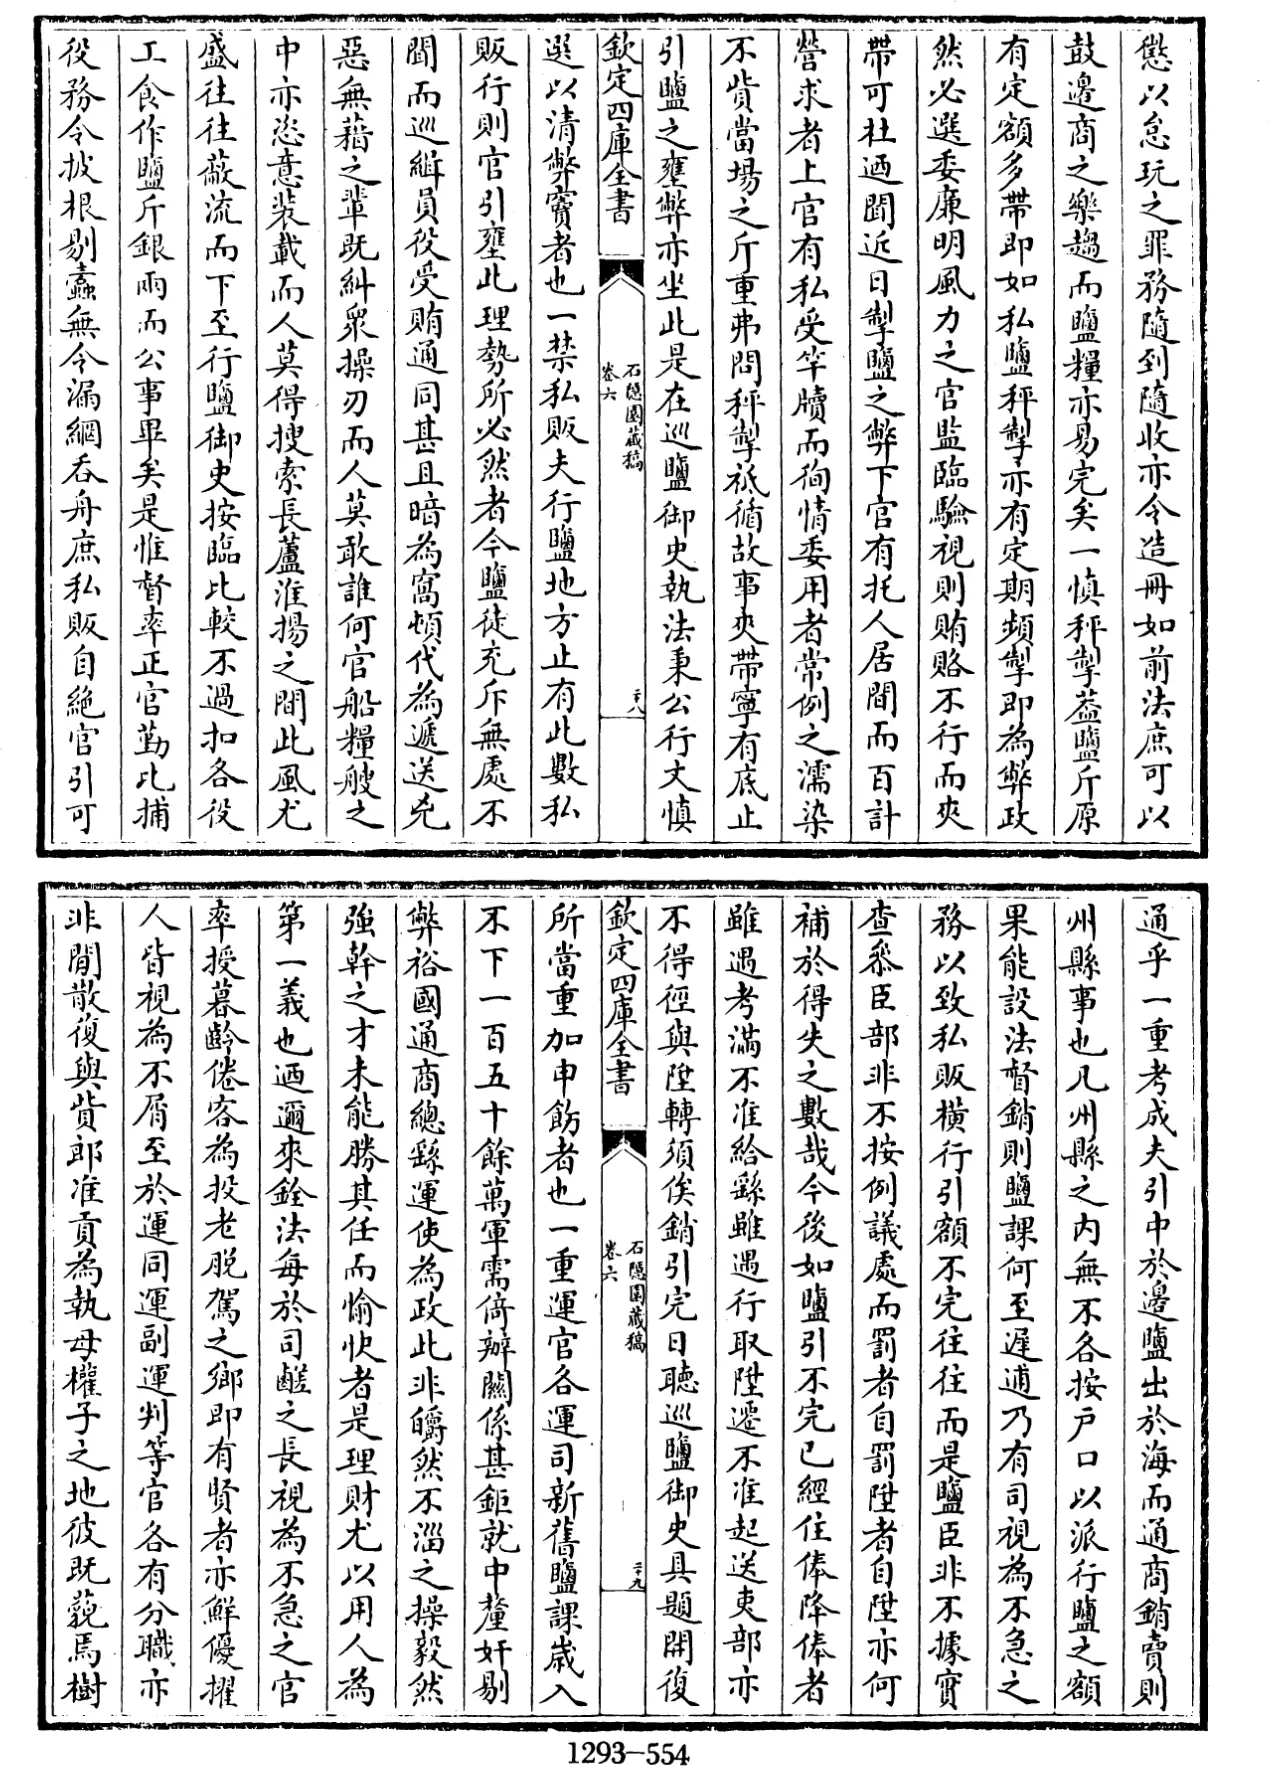 懲以怠玩之罪務隨到隨收亦令造冊如前法庶可以
鼓邊商之樂趨而鹽糧亦易完矣一慎秤掣葢鹽斤原
有定額多帶即如私鹽秤掣亦有定期頻掣即為弊政
然必選委廉明風力之官監臨驗視則賄賂不行而夾
帶可杜廼聞近日掣鹽之弊下官有托人居間而百計
營求者上官有私受竿牘而徇情委用者常例之濡染
不貲當場之斤重弗問秤掣祗循故事夾帶寧有底止
引鹽之壅弊亦坐此是在巡鹽御史執法秉公行文慎
欽定四庫全書
石隱園藏稿
卷六
二十八
選以清弊竇者也一禁私販夫行鹽地方止有此數私
販行則官引壅此理勢所必然者今鹽徒充斥無處不
聞而巡緝員役受賄通同甚且暗為窩頓代為遞送兇
惡無藉之輩既糾衆操刃而人莫敢誰何官船糧艘之
中亦恣意裝載而人莫得搜索長蘆淮揚之間此風尤
盛往往蔽流而下至行鹽御史按臨比較不過扣各役
工食作鹽斤銀兩而公事畢矣是惟督率正官勤比捕
役務令披根剔蠧無令漏網吞舟庶私販自絶官引可
通乎一重考成夫引中於邊鹽出於海而通商銷賣則
州縣事也凡州縣之内無不各按戸口以派行鹽之額
果能設法督銷則鹽課何至遲逋乃有司視為不急之
務以致私販横行引額不完往往而是鹽臣非不據實
查叅臣部非不按例議處而罰者自罰陞者自陞亦何
補於得失之數哉今後如鹽引不完已經住俸降俸者
雖遇考滿不准給繇雖遇行取陞遷不准起送吏部亦
不得徑與陞轉須俟銷引完日聽巡鹽御史具題開復
欽定四庫全書
石隱園藏稿
卷六
二十九
所當重加申飭者也一重運官各運司新舊鹽課歳入
不下一百五十餘萬軍需倚辦關係甚鉅就中釐奸剔
弊裕國通商總繇運使為政此非皭然不淄之操毅然
強幹之才未能勝其任而愉快者是理財尤以用人為
第一義也廼邇來銓法每於司鹺之長視為不急之官
率授暮齡倦客為投老脱駕之鄉即有賢者亦鮮優擢
人皆視為不屑至於運同運副運判等官各有分職亦
非閒散復與貲郎准貢為執母權子之地彼既藐焉樹
1293-554